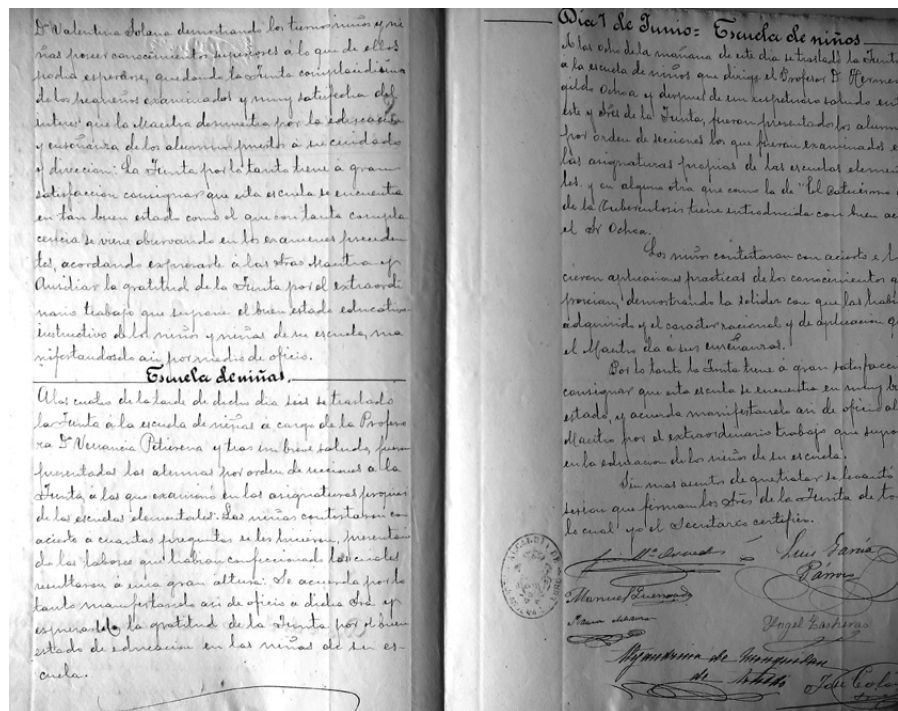 Dª Valentina Solana demostrando los tiernos niños y ni-
ñas poseer conocimientos superiores a lo que de ellos
podia esperarse, quedando la Junta complacidisima
de los pequeños examinados y muy satisfecha del
interes que la Maestra demuestra por la educación
y enseñanza de los alumnos puestos a su cuidado
y direccion. La Junta por lo tanto tiene á gran
satisfaccion consignar que esta escuela se encuentra
en tan buen estado como el que con tanta compla
cencia se viene observando en los examenes preceden
tes, acordando expresarle á las Sras Maestra y
Auxiliar la gratitud de la Junta por el extraordi
nario trabajo que supone el buen estado educativo
instructivo de los niños y niñas de su escuela, ma
nifestandoselo asi por medio de oficio.
Escuela de niñas.
A las cuatro de la tarde de dicho dia seis se trasladó
la Junta á la escuela de niñas a cargo de la Profeso
ra Dª Venancia y tras un breve saludo, fueron
presentadas las alumnas por orden de secciones á la
Junta, a las que examinó en las asignaturas propias
de las escuelas elementales. Las niñas contestaron con
acierto a cuantas preguntas se les hicieron, presentan
do las labores que habian confeccionado las cuales
resultaron á una gran altura. Se acuerda por lo
tanto manifestando asi de oficio a dicha Sra y
expresarle la gratitud de la Junta por el buen
estado de educacion en las niñas de su es-
cuela.
Dia 7 de Junio = Escuela de niños
A las ocho de la mañana de este dia se trasladó la Junta
a la escuela de niños que dirige el Profesor D. Hermene
gildo Ochoa y despues de un respetuoso saludo ent
este y Sres de la Junta, fueron presentados los alumn
por orden de secciones los que fueron examinados e
las asignaturas propias de las escuelas element
les. y en alguna otra que como la de "El Catecismo
de la Tuberculosis tiene introducida con buen ac
el Sr Ochoa.
Los niños contestaron con acierto e hi
cieron aplicaciones practicas de los conocimientos q
poseian, demostrando la solidez con que las habi
adquirido y el caracter racional y de aplicacion qu
el Maestro da á sus enseñanzas.
Por lo tanto la Junta tiene á gran satisfacci
consignar que esta escuela se encuentra en muy bu
estado, y acuerda manifestarselo asi de oficio al
Maestro por el extraordinario trabajo que supon
en la educacion de los niños de su escuela.
Sin mas asuntos de que tratar se levantó
sesion que firman los Sres de la Junta de to
lo cual yo el Secretario certifico.
Luis Garcia
Manuel
Angel
de
José
ALCALDIA